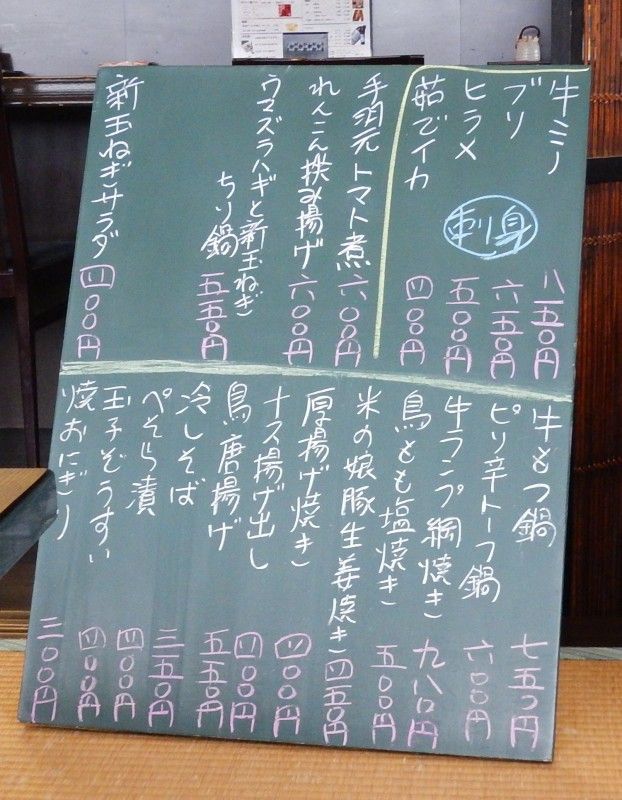 刺身
牛ミノ 八五〇円
ブリ 六五〇円
ヒラメ 五〇〇円
茹でイカ 四〇〇円
手羽元トマト煮 六〇〇円
れんこん挟み揚げ 六〇〇円
ウマズラハギと新玉ねぎ
ちり鍋 五五〇円
新玉ねぎサラダ 四〇〇円
牛もつ鍋 七五〇円
ピリ辛トーフ鍋 六〇〇円
牛ランプ網焼き 九八〇円
鳥もも塩焼き 五〇〇円
米の娘豚生姜焼き 四五〇円
厚揚げ焼き 四〇〇円
ナス揚げ出し 四〇〇円
鳥唐揚げ 五五〇円
冷しそば 三五〇円
ぺそら漬 四〇〇円
玉子ぞうすい 四〇〇円
焼おにぎり 三〇〇円